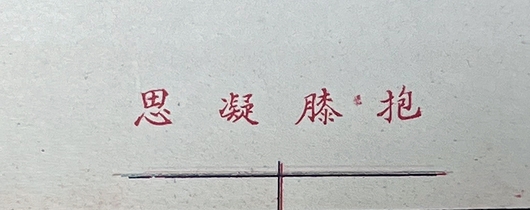 思凝膝抱